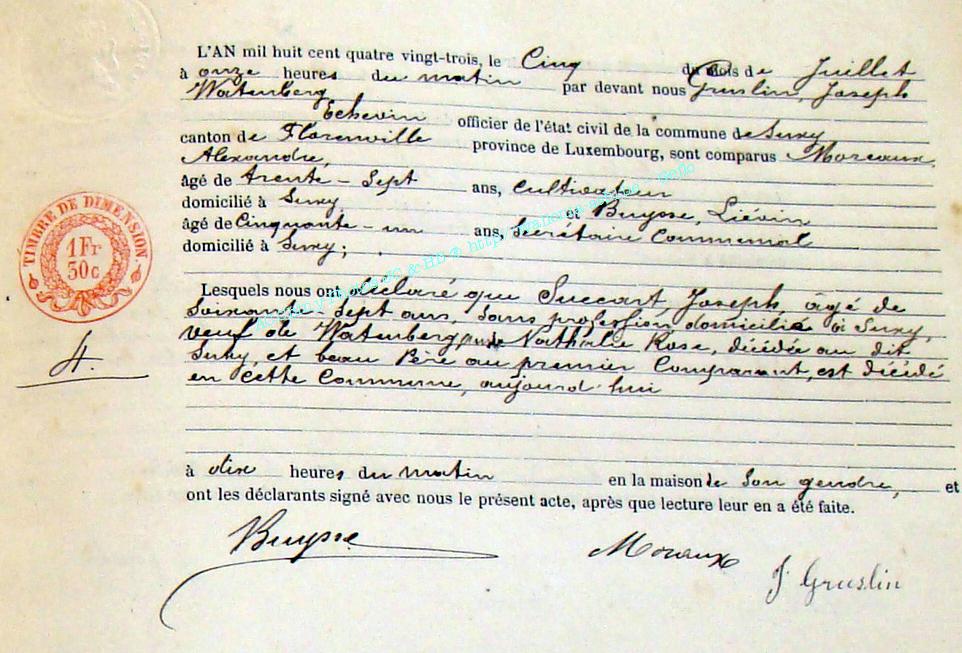 L'AN mil huit cent quatre vingt-trois, le Cinq du mois de Juillet
à onze heures du matin par devant nous Gruslin, Joseph
Watenberg
Echevin officier de l'état civil de la commune de Suxy
canton de Florenville province de Luxembourg, sont comparus Moreaux,
Alexandre,
âgé de trente-Sept ans, Cultivateur
domicilié à Suxy et Buysse, Liévin
âgé de Cinquante-un ans, Secrétaire Communal
domicilié à Suxy;
Lesquels nous ont déclaré que Succart Joseph, agé de
Soixante-Sept ans, Sans profession, domicilié à Suxy,
veuf de Watenberg Nathalie Rose, décédée au dit
Suxy, et beau Père au premier Comparant, est décédé
en cette Commune, aujourd'hui
à dix heures du matin en la maison de Son gendre, et
ont les déclarants signé avec nous le présent acte, après que lecture leur en a été faite.
Buysse Moreaux
J Gruslin
TIMBRE DE DIMENSION.
1 Fr
50 c
4.